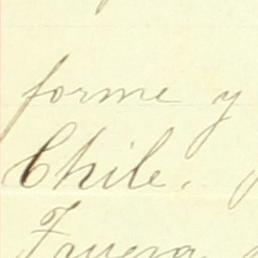 forme y
Chile.